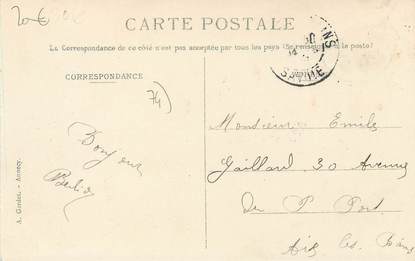 20€
CARTE POSTALE
La Correspondance de ce côté n'est pas acceptée par tous les pays (Se renseigner à la poste)
CORRESPONDANCE
74)
Bonjour
Monsieur Emile
Gaillard 30 Avenue
du P Port
Aix les Bains
A. Gardet, - Annecy.